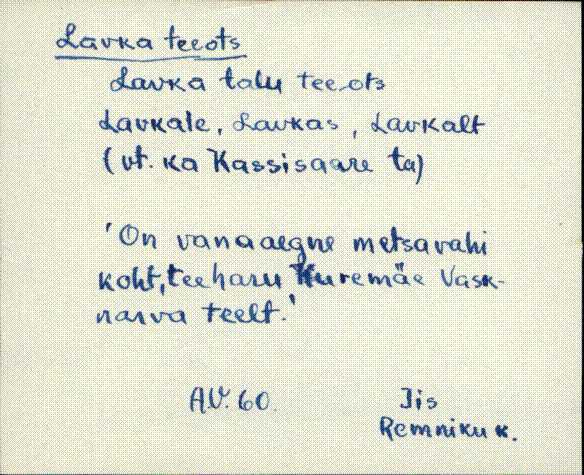 Lavka teeots
Lavka talu teeots
Lavkale, Lavkas, Lavkalt
(vt. ka Kassisaare ta)
'On vanaaegne metsavahi
koht, teeharu Kuremäe Vask-
narva teelt.'
A.V. 60. Jis
Remniku k.